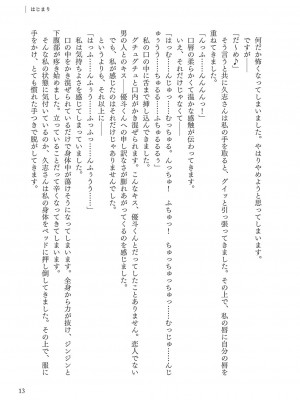 はじまり
何だか怖くなってしまいました。やはりやめようと思うので
ですが――
「だ～め♪」
そう言うのと共に久志さんは私の手を取ると、グイッと引っ張ってきました。その上で、私の唇に自分の唇を
重ねてきました。
「はっふ……んんんんっ！」
口唇の柔らかくて温かな感触が伝わってきます。
それだけじゃなく――
「ちゅっ……むちゅうっ……ふちゅっ……んっちゅ！　むっちゅる、んっちゅ……ちゅっちゅっ……んじ
ゅうう……ちゅっちゅっちゅっ……むっじゅ……んじゅうっ……ふちゅるるるぅ」
私の口の中に舌まで挿し込んできました。
グチュグチュと口内がかき混ぜられます。こんなキス、優斗くんとだってしたことありません。恋人でない
男の人とのキス――優斗くんへの申し訳なさが膨れあがってくるのを感じました。
でも、私が感じたのはそれだけじゃありませんでした。
というより、それ以上に――
「はっふ……んふぅうっ……ふっふっ……んふぅうう……」
私は気持ちよさを感じてしまっていました。
口の中をかき混ぜられているだけで身体中が蕩けそうになってしまいます。全身から力が抜け、ジンジンと
下腹部が疼き始めました。立っていることだって辛くなってきてしまいます。
そんな私の状態に気付いているのか、久志さんは私の身体をベッドに押し倒してきました。その上で、服に
手をかけ、とても慣れた手つきで脱がしてきます。
13